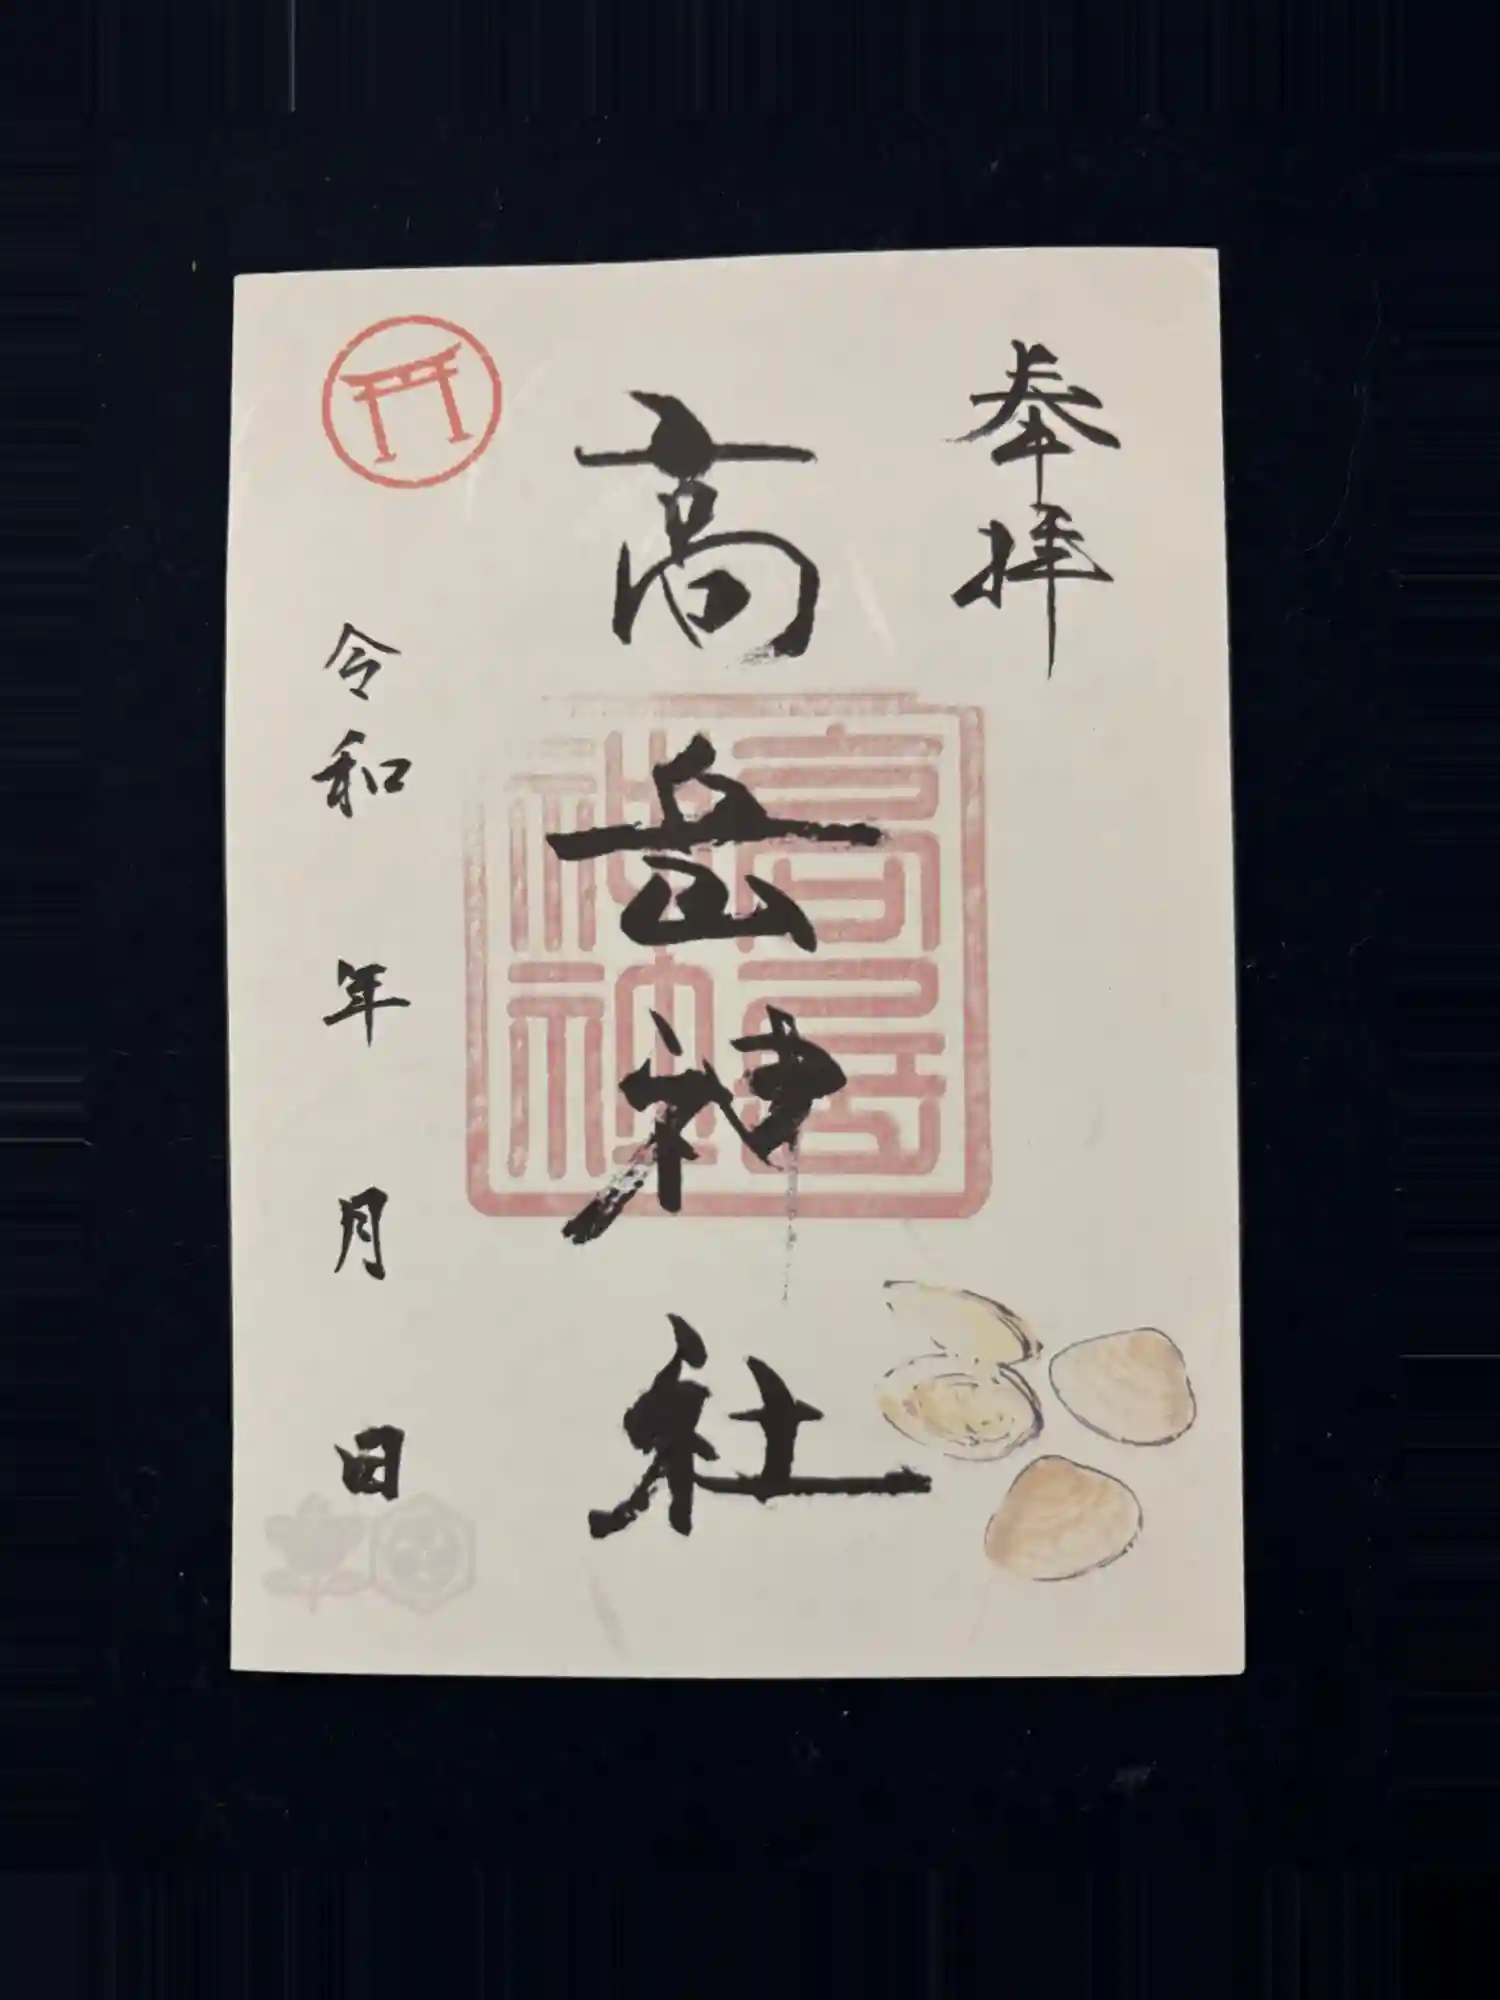 奉拝
高岳神社
高岳神社
令和 年 月 日